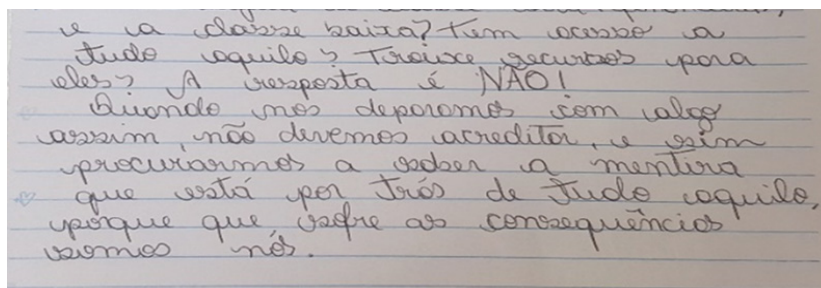 e a classe baixa? Tem acesso a
tudo aquilo? Trouxe recursos para
eles? A resposta é NÃO!
Quando nos deparamos com algo
assim, não devemos acreditar, e sim
procurarmos a saber a mentira
que está por trás de tudo aquilo,
porque que sofre as consequências
somos nós.